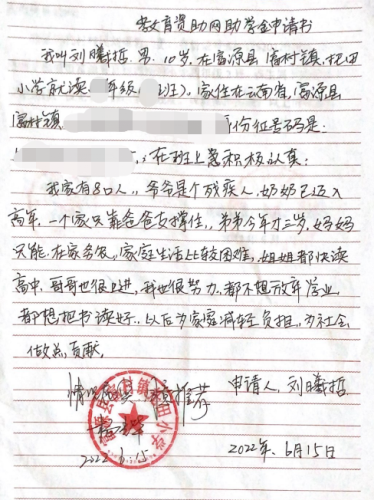 教育资助网助学金申请书
我叫刘曦哲，男，10岁，在富源县富村镇，托田
小学就读 年级（ 班），家住在云南省，富源县
富村镇 身份证号码是：
，在班上表积极认真：
我家有8口人，爷爷是个残疾人，奶奶已迈入
高年，一个家只靠爸爸支撑住，弟弟今年才三岁，妈妈
只能在家务农，家庭生活比较困难，姐姐都快读
高中，哥哥也很上进，我也很努力，都不想放弃学业，
都想把书读好，以后为家庭减轻负担，为社会
做点贡献。
情况属实 推荐 申请人：刘曦哲
2022.6.15 2022年6月15日
富源县富村镇托田小学